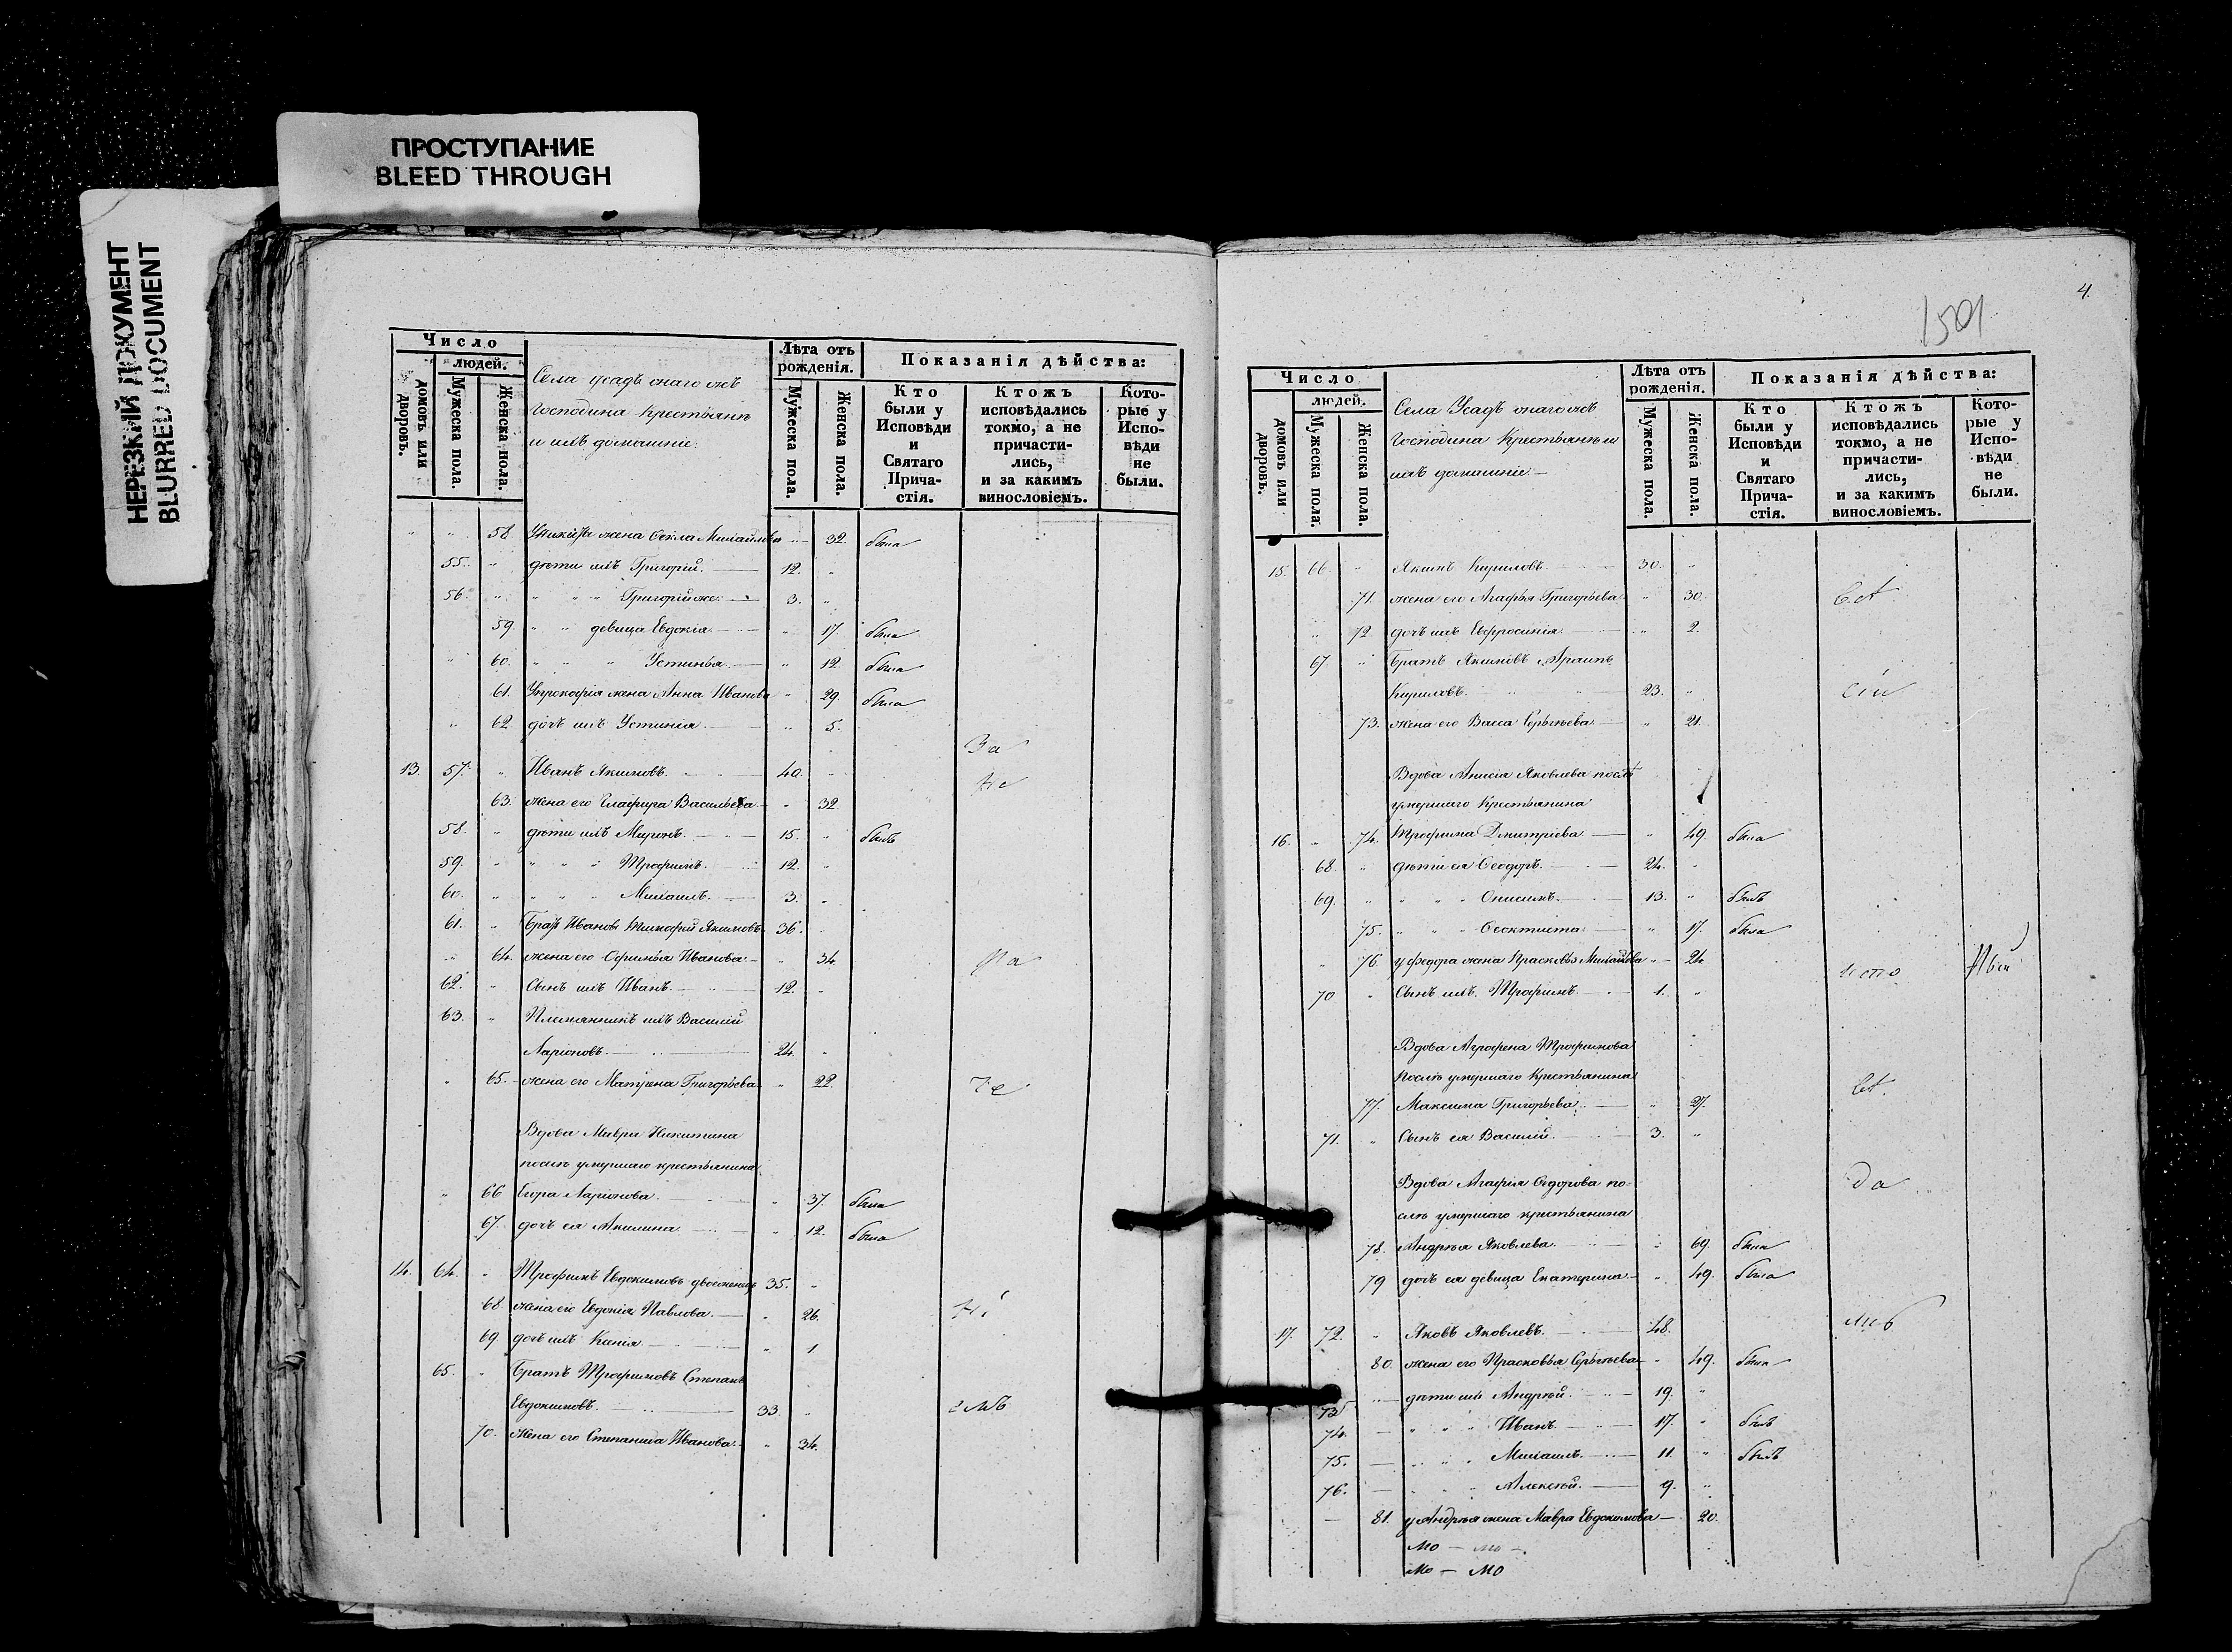 ПРОСТУПАНИЕ
BLEED THROUGH
НЕРЕЗКИЙ ДОКУМЕНТ
BLURRED DOCUMENT
Число
людей.
домовъ или дворовъ.
Мужеска пола.
Женска пола.
Села Усадъ онаго жъ
Господина Крестьянъ
и ихъ домашніе.
Лѣта отъ рожденія.
Мужеска пола.
Женска пола.
Показанія дѣйства:
Кто были у Исповѣди и Святаго Прича-стія.
Ктожъ исповѣдались токмо, а не причасти-лись, и за какимъ винословіемъ.
Кото-рые у Испо-вѣди не были.
58. жена Ѳекла Михайлова 32. была
55. дѣти ихъ Григорій. 12.
56. Григорій же. 3.
59. девица Евдокія 17. была
60. Устинья 12. была
61. Упрокофія жена Анна Иванова 29 была
62 дочь ихъ Устинія 5.
За
13. 57. Иванъ Якимовъ. 40.
не
63. жена его Глафира Васильева 32.
58. дѣти ихъ Миронъ. 15. былъ
59. Трофимъ. 12.
60. Михаилъ. 3.
61. Братъ Ивановъ Тимофей Якимовъ 36.
64. жена его Офимья Иванова 34.
62. Сынъ ихъ Иванъ. 12.
63. Племянникъ ихъ Василій
Ларіоновъ. 24.
65. жена его Матрена Григорьева 22.
Вдова Мавра Никитина
послѣ умершаго крестьянина
66 Егора Ларіонова. 37. была
67. дочь ея Акилина. 12. была
14. 64. Трофимъ Евдокимовъ двоеженецъ 35.
68. жена его Евдокія Павлова. 26.
69 дочь ихъ Ксенія 1
65. Братъ Трофимовъ Степанъ
Евдокимовъ. 33.
70. Жена его Степанида Иванова. 34.
4.
1501
Число
людей.
домовъ или дворовъ.
Мужеска пола.
Женска пола.
Села Усадъ онаго жъ
Господина Крестьянъ и
ихъ домашніе
Лѣта отъ рожденія.
Мужеска пола.
Женска пола.
Показанія дѣйства:
Кто были у Исповѣди и Святаго Прича-стія.
Ктожъ исповѣдались токмо, а не причасти-лись, и за какимъ винословіемъ.
Кото-рые у Испо-вѣди не были.
15. 66. Якимъ Кириловъ. 30.
71. жена его Агафья Григорьева 30.
72 дочь ихъ Евфросинія 2.
67. Братъ Якимовъ
Кириловъ. 23.
73. жена его Васса Сергѣева 21.
Вдова Анисія Яковлева послѣ
умершаго Крестьянина
16. 74. Трофима Дмитріева 49. была
68. дѣти ея Ѳеодоръ. 24.
69. Онисимъ. 13. былъ
75. Ѳеоктиста 17. была
76. у Федора жена Прасковья Михайлова 24
70 Сынъ ихъ Трофимъ. 1.
Вдова Аграфена Трофимова
послѣ умершаго Крестьянина
77. Максима Григорьева. 27.
71. Сынъ ея Василій. 3.
Вдова Агафія Ѳедорова по-
слѣ умершаго крестьянина
78. Андрея Яковлева. 69. была
79 дочь ея девица Екатерина 49. была
17. 72. Яковъ Яковлевъ. 48.
80. жена его Прасковья Сергѣева 49. была
73 дѣти ихъ Андрей. 19.
74. Иванъ. 17. былъ
75. Михаилъ. 11. былъ
76. Алексѣй. 9.
81. у Андрея жена Мавра Евдокимова 20.